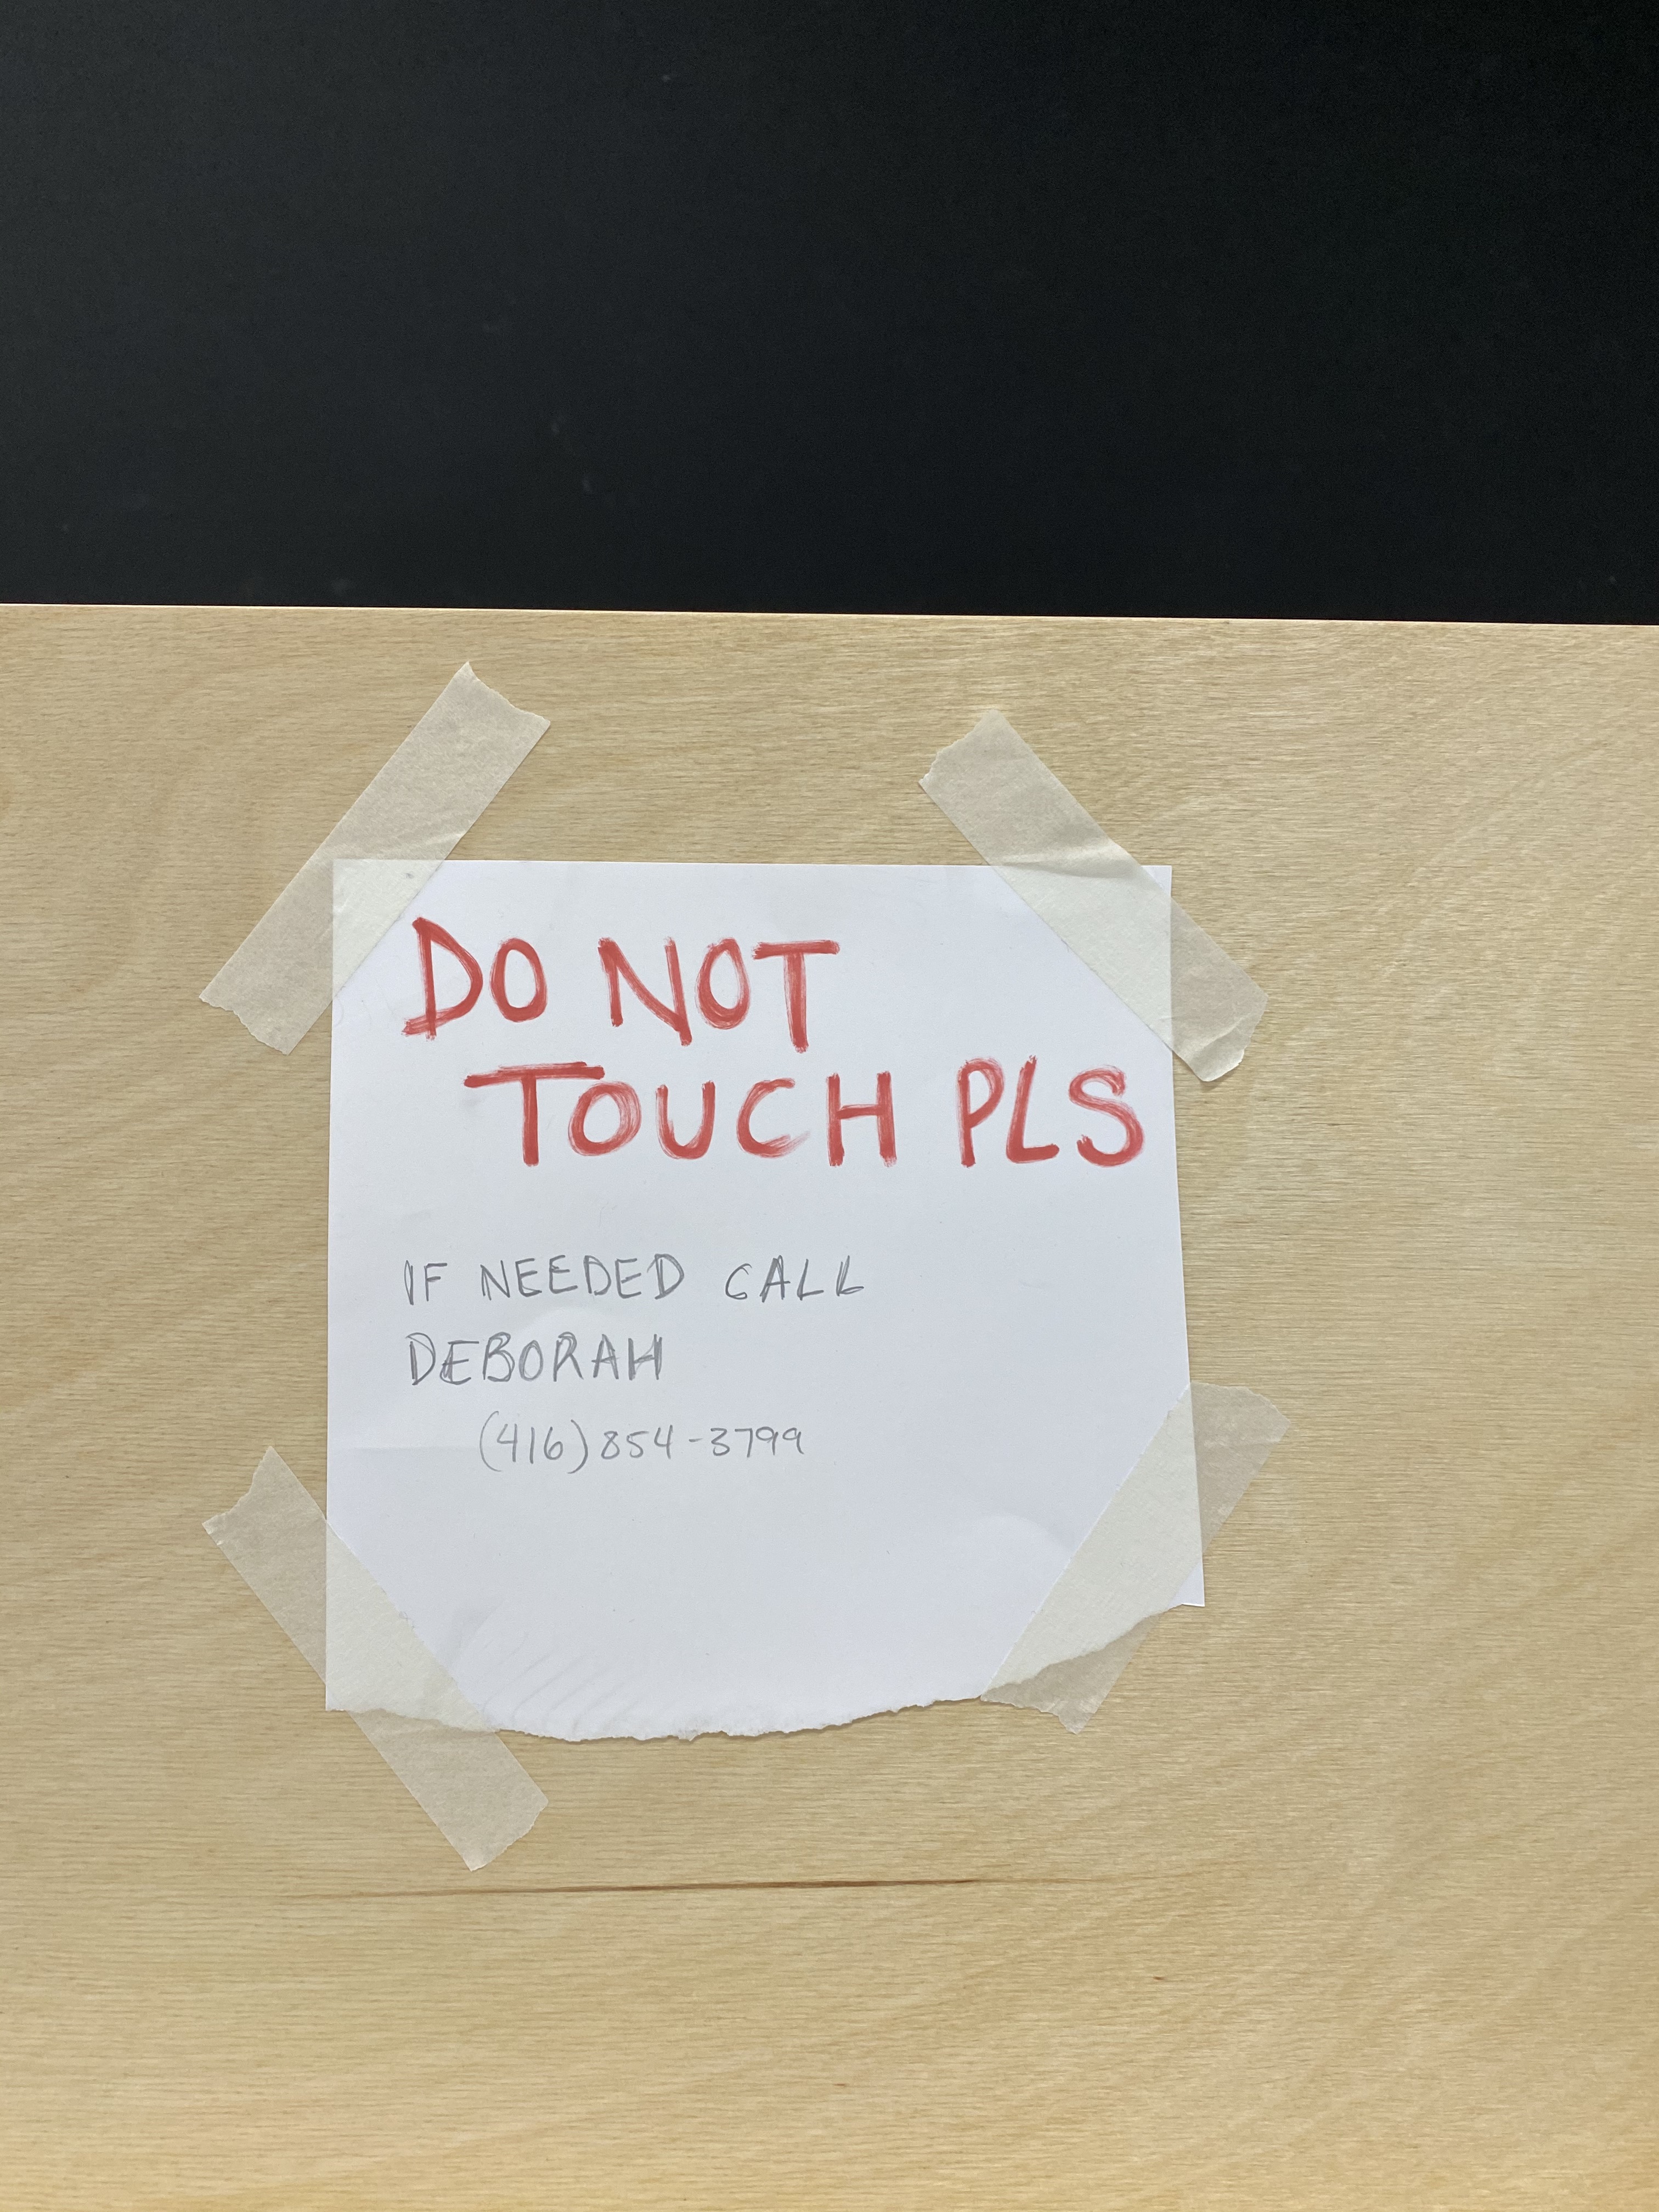 DO NOT
TOUCH PLS
IF NEEDED CALL
DEBORAH
(416) 854-3799